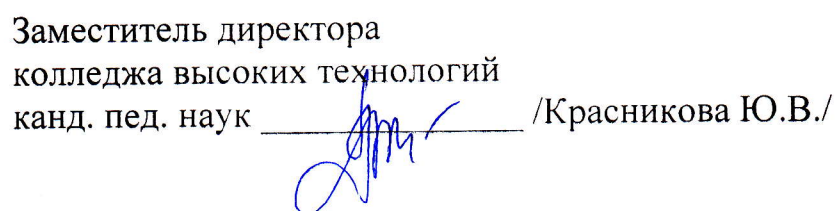 Заместитель директора
колледжа высоких технологий
канд. пед. наук ______________ /Красникова Ю.В./